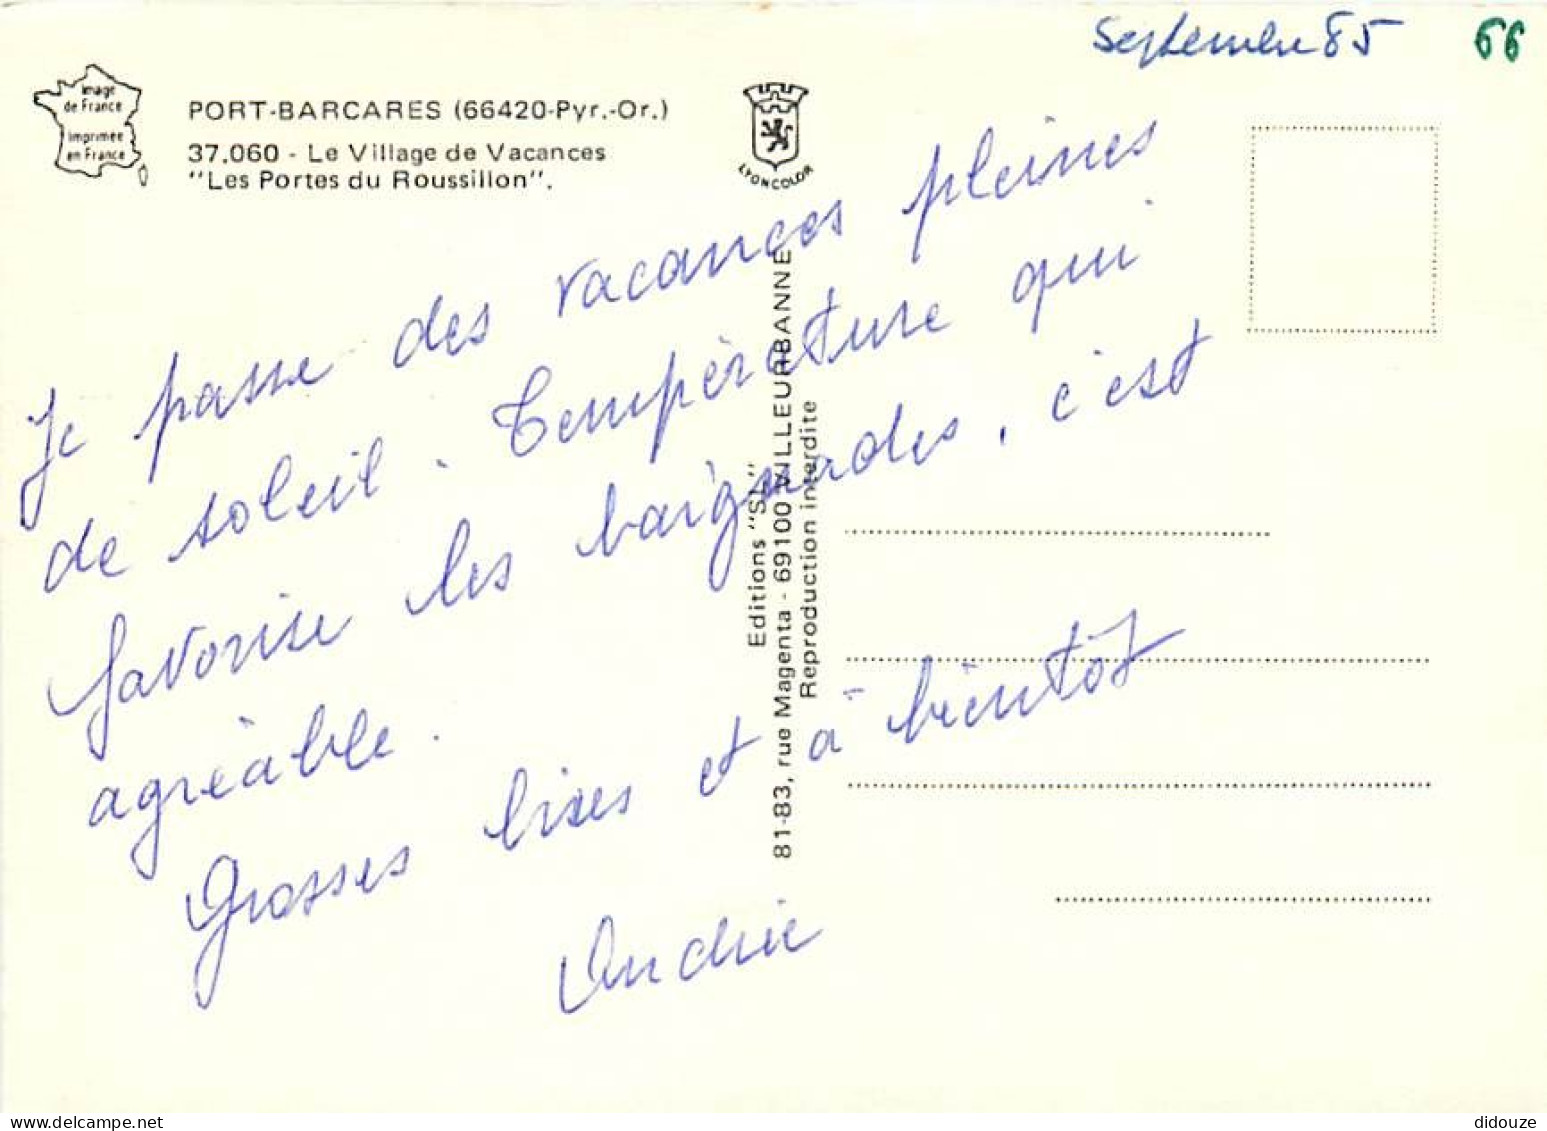 Septembre 85 66
Image
de France
Imprimée
en France
PORT-BARCARES (66420-Pyr.-Or.)
37.060 - Le Village de Vacances
"Les Portes du Roussillon".
LYONCOLOR
Je passe des vacances pleines
de soleil. Température qui
favorise les baignades, c'est
agréable.
Grosses bises et à bientôt
Andrée
Editions "SL"
81-83, rue Magenta - 69100 VILLEURBANNE
Reproduction interdite
didouze